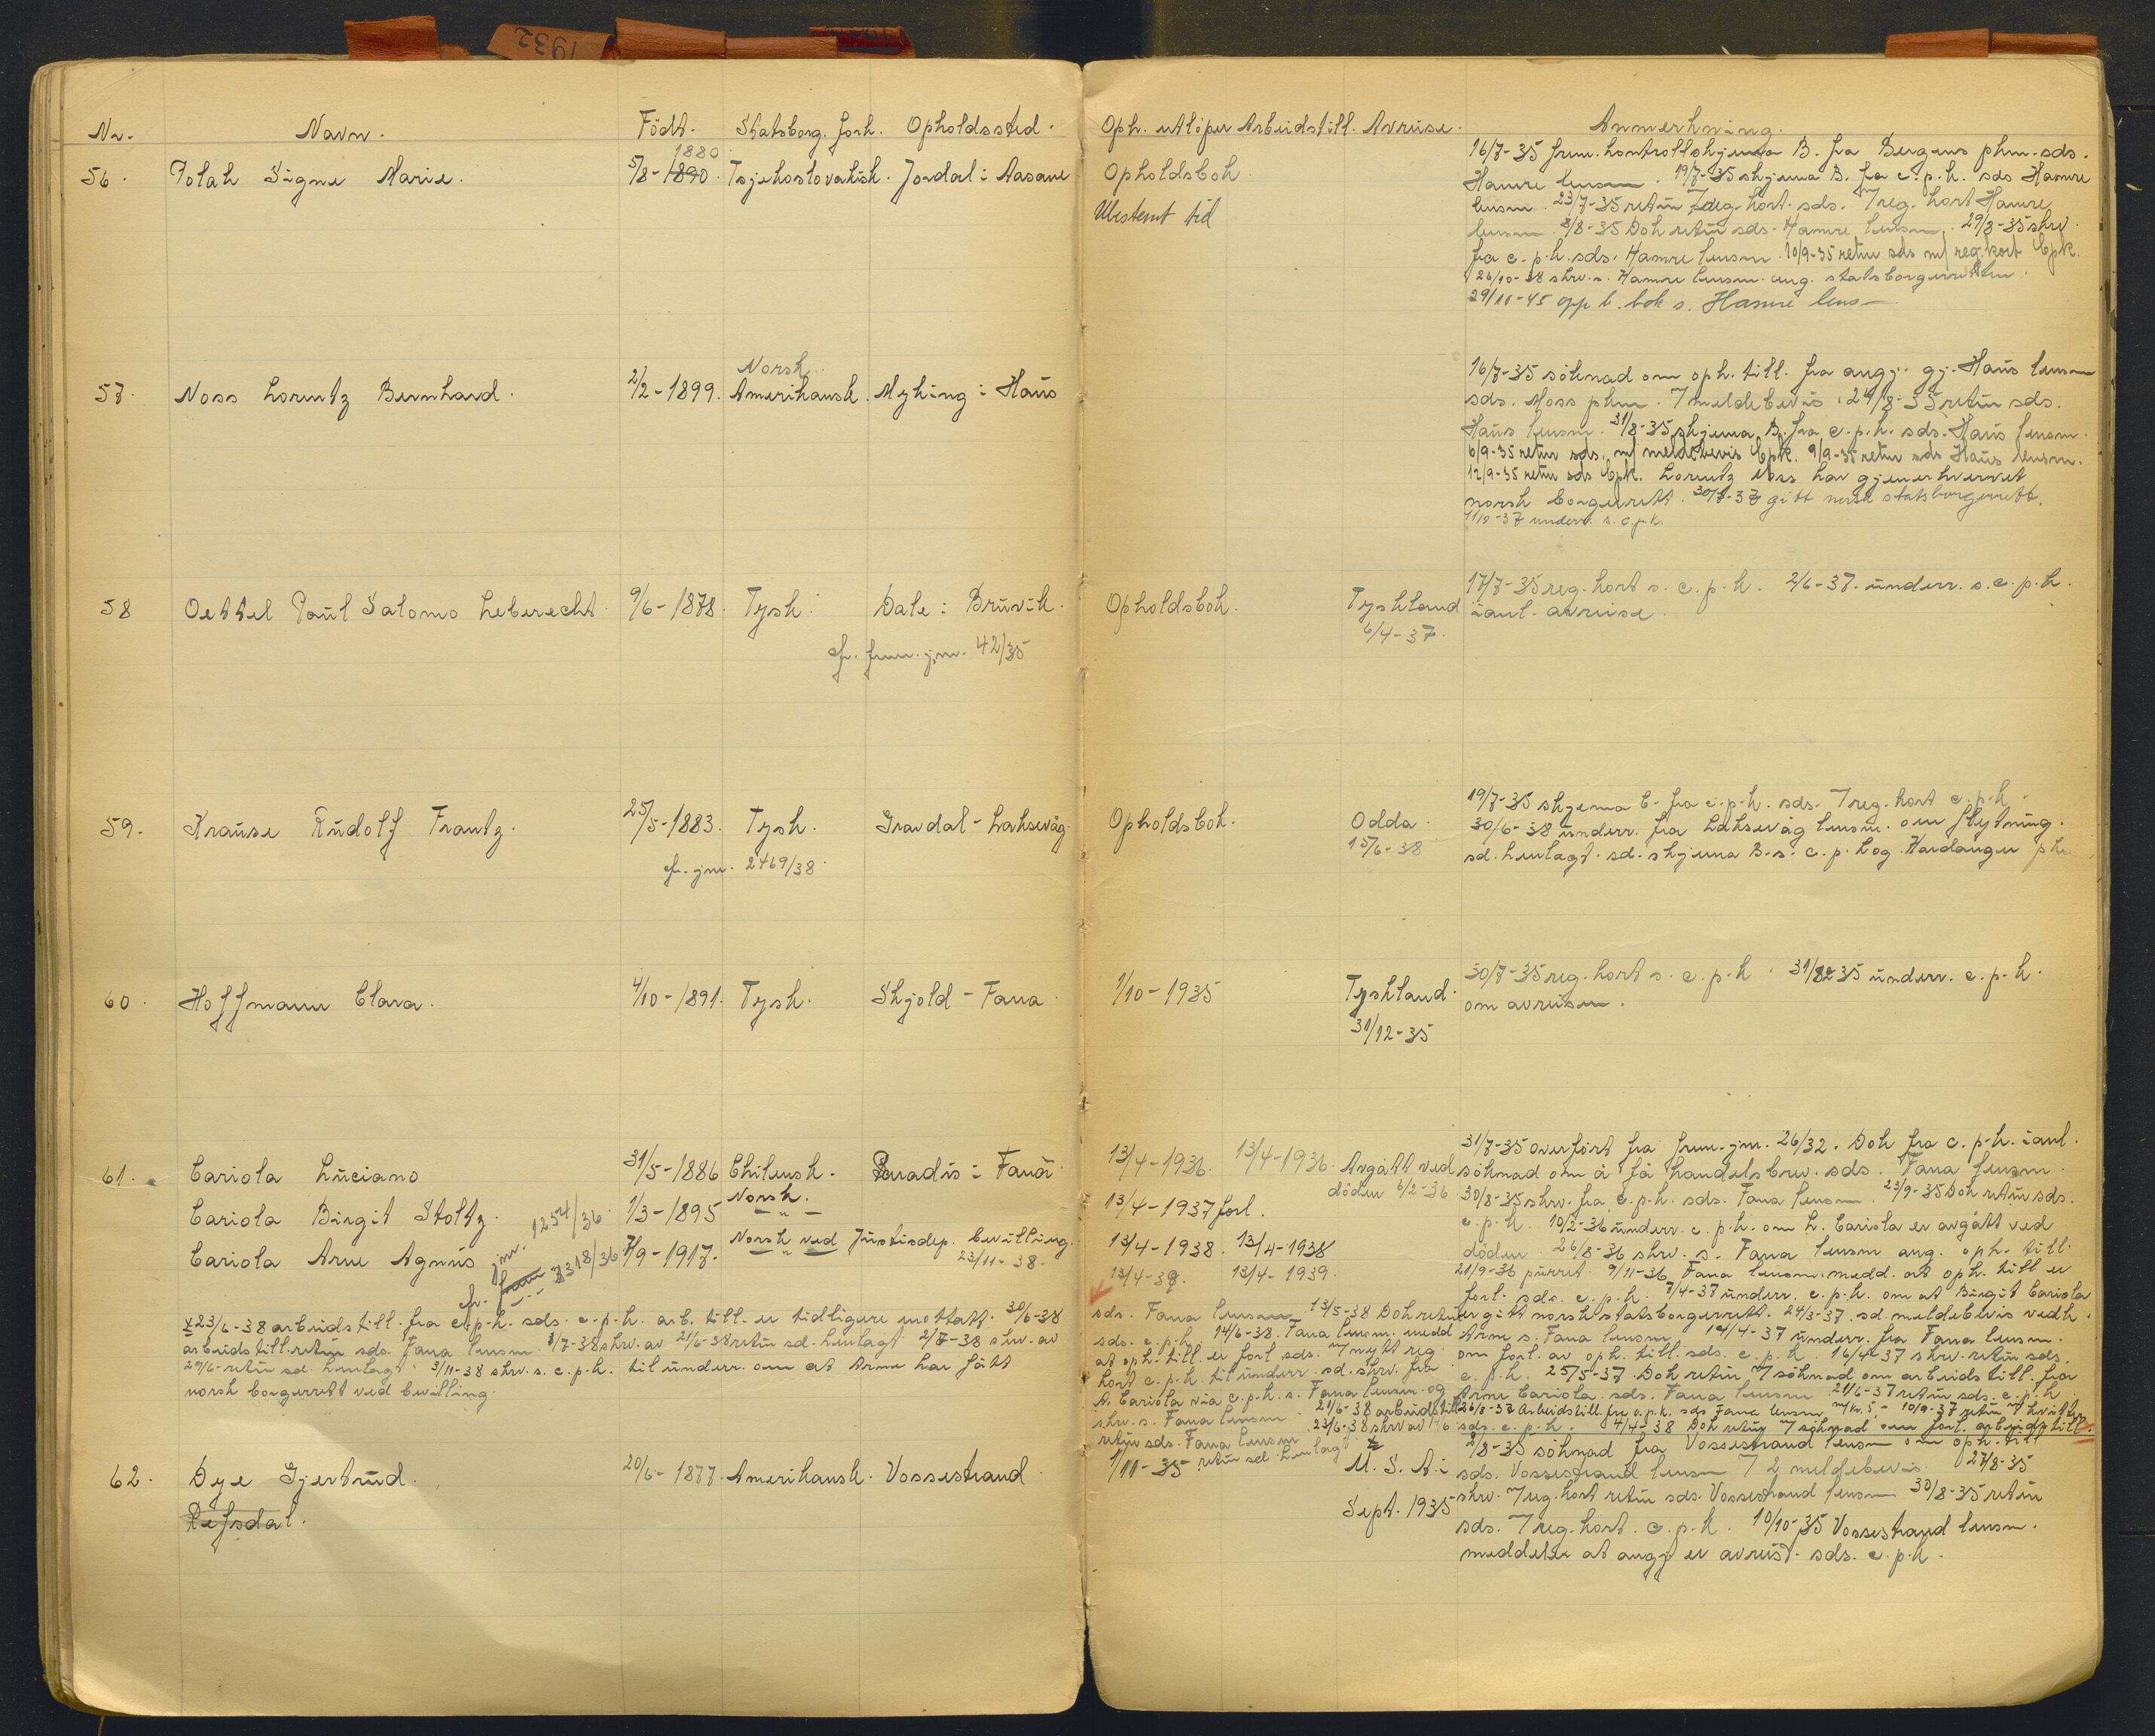 1932
Nr. Navn. Födt. Statsborg. forh. Opholdssted. Oph. utlöper Arbeidstill. Avreise. Anmerkning.
1880
56. Polak Signe Marie. 5/8-1890. Tsjekoslovakisk. Jordal i Aasane Opholdsbok.
Ubestemt tid
16/7-35 frem. kontrollskjema B. fra Bergens pkm. sds.
Hamre lensm. 19/7-35 skjema B. fra c.p.k. sds Hamre
lensm. 23/7-35 retur 7 reg. kort. sds. 7 reg. kort Hamre
lensm. 8/8-35 Dok retur sds. Hamre lensm. 29/8-35 skrv.
fra c.p.k. sds. Hamre lensm. 10/9-35 retur sds m/ reg.kort Cpk.
26/10-38 skrv. s. Hamre lensm. ang. statsborgerretten.
29/11-45 opp h. bok s. Hamre lens
Norsk
57. Noss Lorentz Bernhard. 2/2-1899. Amerikansk. Myking i Haus
16/7-35 söknad om oph. till. fra angj. gj. Haus lensm
sds. Moss pkm. 7 meldebevis. 24/8-35 retur sds.
Haus lensm. 31/8-35 skjema B. fra c.p.k. sds. Haus lensm.
6/9-35 retur sds. m/ meldebevis Cpk. 9/9-35 retur sds Haus lensm.
12/9-35 retur sds Cpk. Lorentz Noss har gjenerhvervet
norsk borgerrett. 30/8-37 gitt norsk statsborgerrett.
11/10-37 underr. s. c.p.k.
58 Oettel Paul Salomo Leberecht. 9/6-1878. Tysk. Dale i Bruvik. Opholdsbok. Tyskland
6/4-37.
cfr. frem. jnr. 42/35
17/7-35 reg. kort s. c.p.k. 2/6-37. underr. s. c.p.k.
i anl. avreise.
59. Krause Rudolf Frantz. 25/5-1883. Tysk. Gravdal - Laksevåg. Opholdsbok. Odda.
15/6-38
cfr. jnr. 2469/38.
19/7-35 skjema C. fra c.p.k. sds. 7 reg. kort c.p.k.
30/6-38 underr. fra Laksevåg lensm. om flytning.
sd. henlagt. sd. skjema B. s. c.p.k og Hardanger pkm
60. Hoffmann Clara. 4/10-1891. Tysk. Skjold - Fana. 1/10-1935 Tyskland.
31/12-35
30/7-35 reg. kort s. c.p.k. 31/12 35 underr. c.p.k.
om avreisen.
61. Cariola Luciano 31/5-1886 Chilensk. Paradis i Fana 13/4-1936. 13/4-1936. Avgått ved
döden 6/2-36.
Cariola Birgit Stoltz. 1/3-1895 Norsk. 13/4-1937 forl.
Cariola Arne Agnus 7/9-1917. Norsk ved Justisdep. bevilling.
23/11-38.
13/4-1938. 13/4-1938
13/4-39. 13/4-1939.
cfr. jnr. 1254/36.
3318/36
31/7-35 overfört fra frem. jnr. 26/32. Dok fra c.p.k. i anl.
söknad om å få handelsbrev. sds. Fana lensm.
30/8-35 skrv. fra c.p.k. sds. Fana lensm. 23/9-35 Dok retur sds.
c.p.k. 10/2-36 underr. c.p.k. om L. Cariola er avgått ved
döden. 26/8-36 skrv. s. Fana lensm ang. oph. till.
21/9-36 purret. 9/11-36 Fana lensm. medd. at oph. till er
forl. sds. c.p.k. 7/4-37 underr. c.p.k. om at Birgit Cariola
er gitt norsk statsborgerrett. 24/3-37. sd. meldebevis vedk.
Arne s. Fana lensm. 14/4-37 underr. fra Fana lensm.
om forl. av oph. till. sds. c.p.k. 16/4-37 skrv. retur sds.
c.p.k. 25/5-37. Dok retur 7 söknad om arbeidstill. fra
Arne Cariola. sds. Fana lensm. 21/6-37 retur sds. c.p.k.
26/8-37 Arbeidstill. fra c.p.k. sds Fana lensm m/kr. 5 - 10/9-37 retur 7 kvitt.
sds. c.p.k. 4/4-38 Dok retur 7 söknad om forl. arbeidstill.
sds. Fana lensm. 13/5-38 Dok retur
sds. c.p.k. 14/6-38. Fana lensm. medd
at oph. till. er forl sds. 7 nytt reg.
kort c.p.k. til underr. sd. skrv. fra
A. Cariola via c.p.k. s. Fana lensm. og
skrv. s. Fana lensm. 21/6-38 arbeidstill
retur sds. Fana lensm. 23/6-38 skrv av 14/6
retur sd. henlagt x
x 23/6-38 arbeidstill. fra c.p.k. sds. c.p.k. arb. till. er tidligere mottatt. 30/6-38
arbeidstill. retur sds. Fana lensm. 1/7-38 skrv. av 21/6-38 retur sd. henlagt. 2/7-38 skrv. av
29/6- retur sd. henlagt. 3/11-38 skrv. s. c.p.k. til underr. om at Arne har fått
norsk borgerrett ved bevilling.
62. Dye Gjertrud. 20/6-1877. Amerikansk. Vossestrand. 1/11-35 U.S.A. i
Sept. 1935
Refsdal.
2/8-35 söknad fra Vossestrand lensm om oph. till
sds. Vossestrand lensm 7 2 meldebevis. 27/8-35
skrv. 7 reg. kort retur sds. Vossestrand lensm 30/8-35 retur
sds. 7 reg. kort. c.p.k. 10/10-35 Vossestrand lensm.
meddeler at angj er avreist. sds. c.p.k.